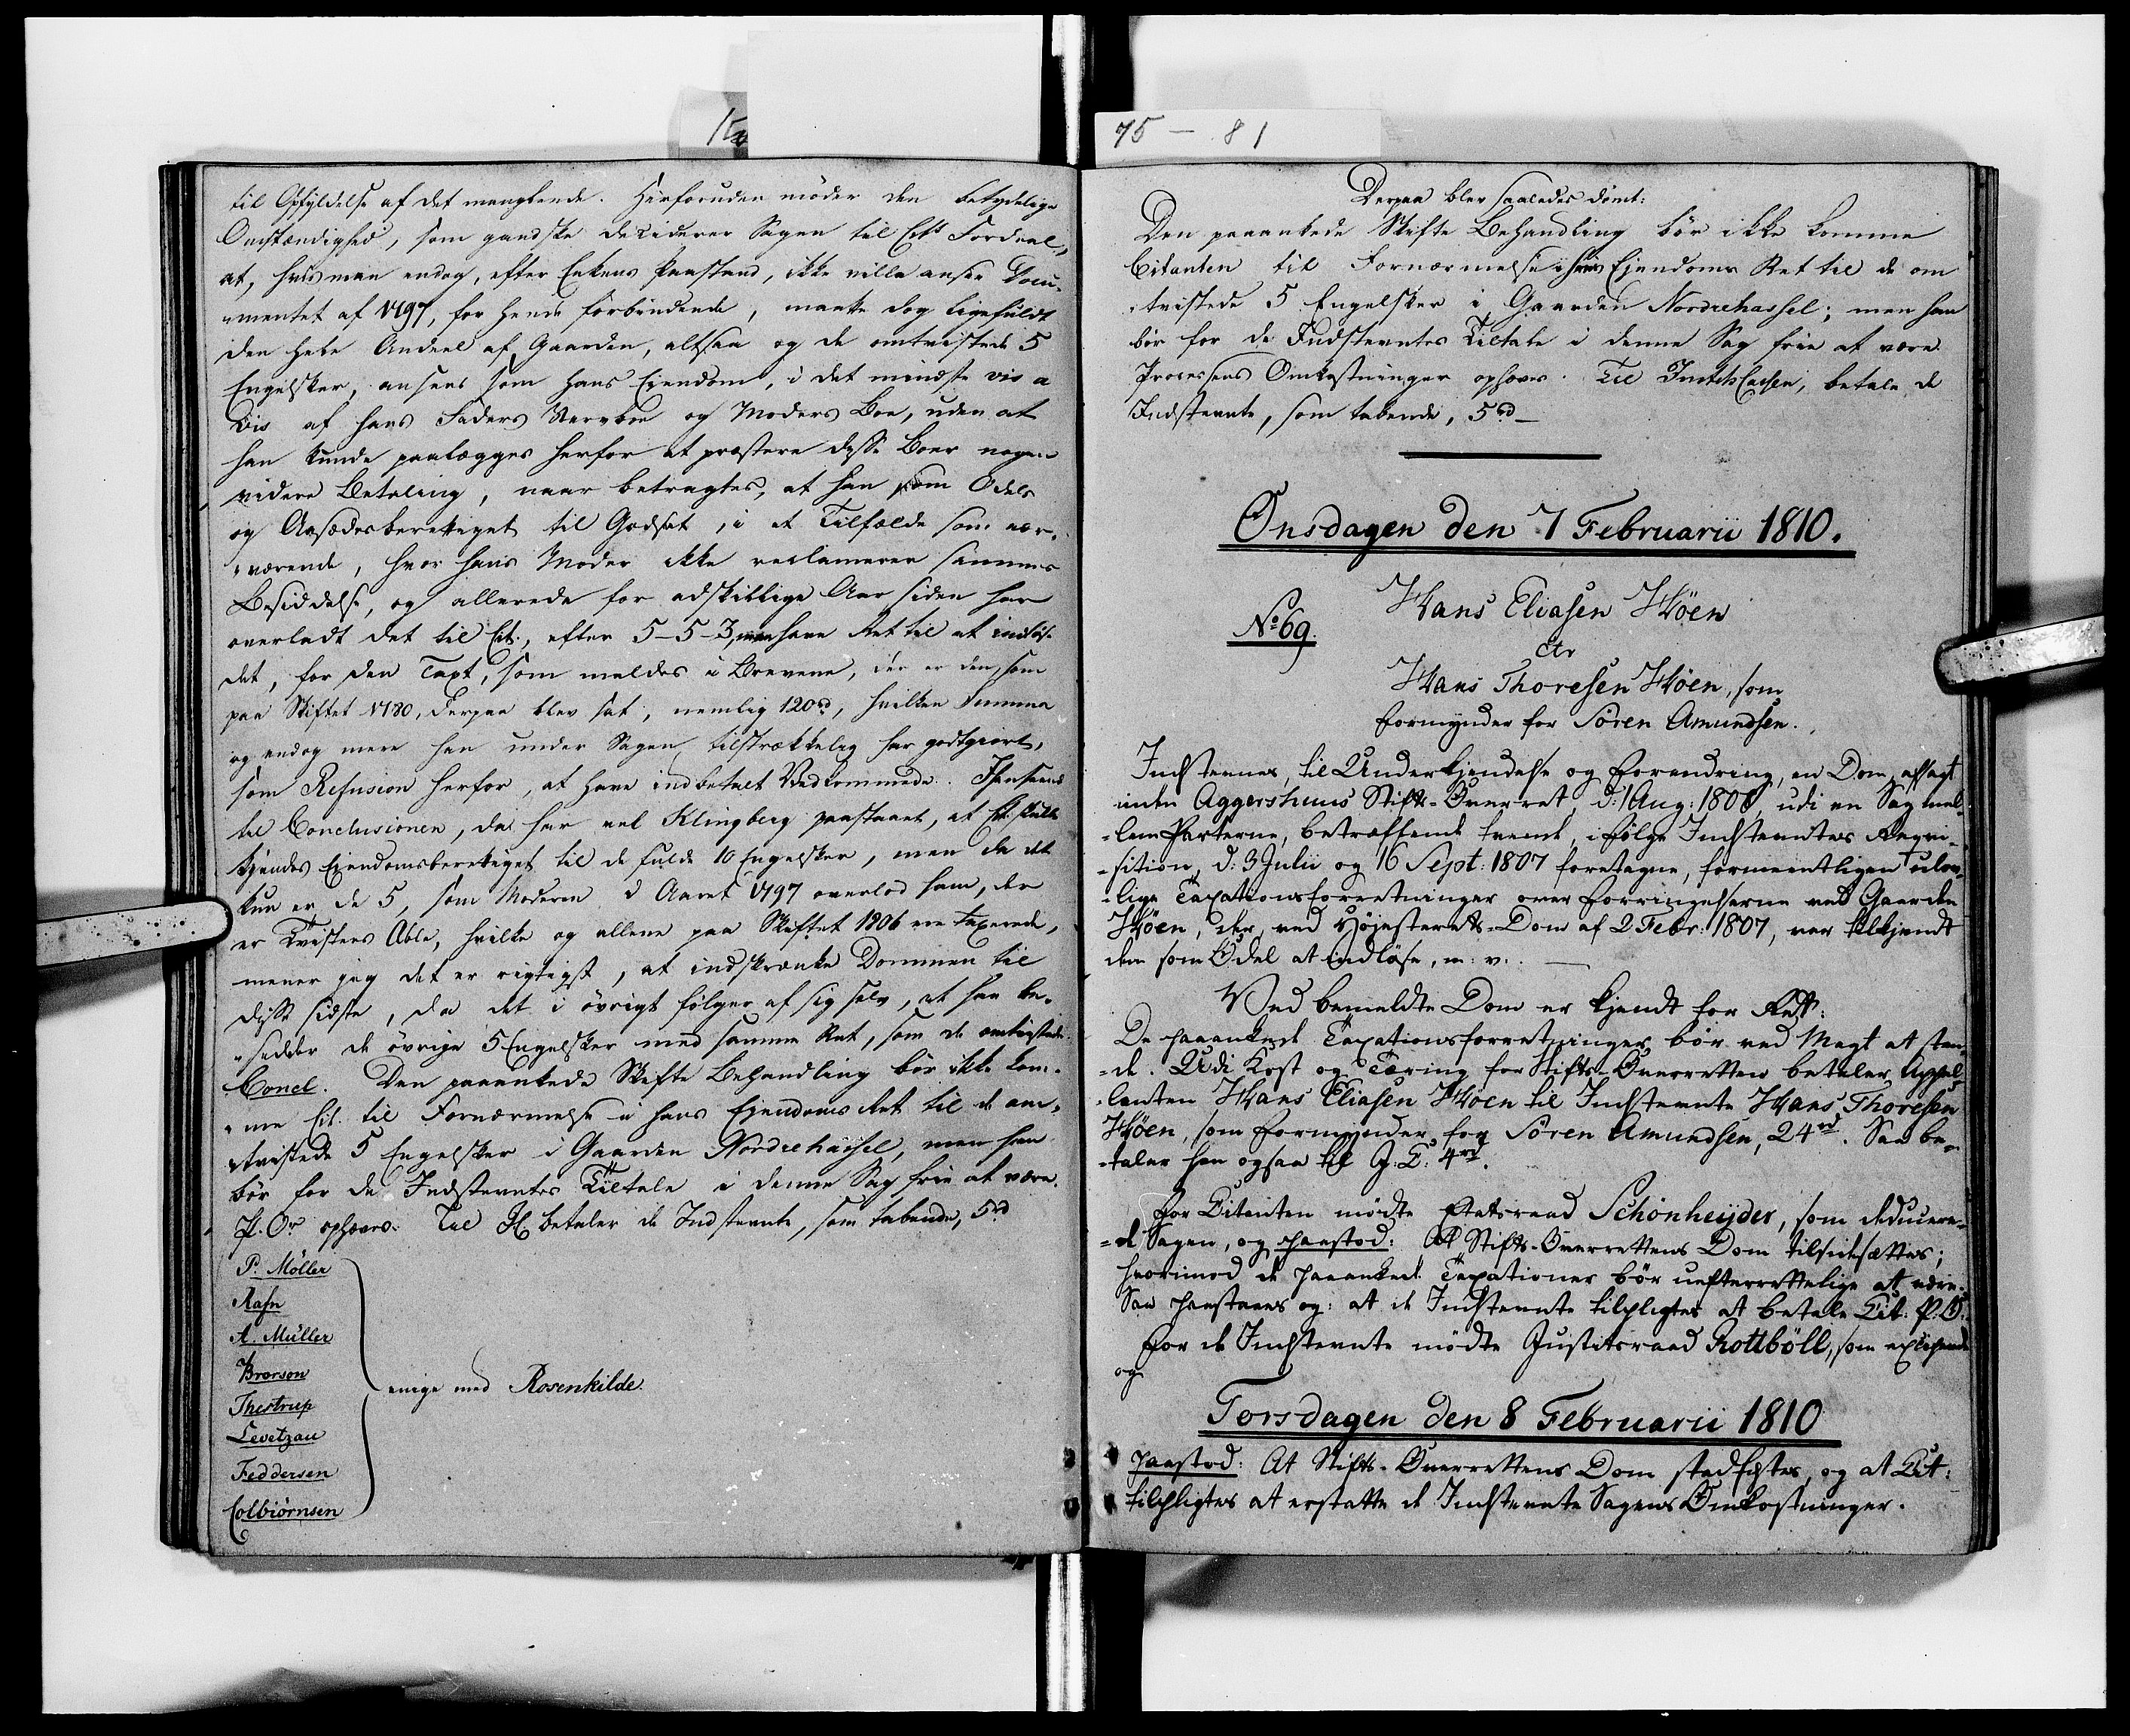 75 - 81
til Opfyldelse af det manglende. Herforuden møder den betydelige
Omstændighed, som gandske deciderer Sagen til Cits Fordeel,
at, hvis man endog, efter Enkens Paastand, ikke ville ansee Docu-
-mentet af 1797, for hende forbindende, maatte dog ligefuldt
den hele Andeel af Gaarden, altsaa og de omtvistede 5
Engelsker, ansees som hans Eiendom, i det mindste vis a
vis af hans Faders Stervboe og Moders Boe, uden at
han kunde paalægges herfor at præstere disse Boer nogen
videre Betaling, naar betragtes, at han som Odels
og Aasædesberettiget til Godset, i et Tilfælde som nær-
-værende, hvor hans Moder ikke reclamerer sammes
Besiddelse, og allerede for adskillige Aar siden har
overladt det til Cit., efter 5-5-3, maa have Ret til at indløse
det, for den Taxt, som meldes i Brevene, der er den, som
paa Skiftet 1780, derpaa blev sat, nemlig 120rd, hvilken Summa
og endog mere han under Sagen tilstrækkelig har godtgiort,
som Refusion herfor, at have indbetalt Vedkommende. Henseende
til Conclusionen, da har vel Klingberg paastaaet, at Cit. skulle
kjendes Eiendomsberettiget til de fulde 10 Engelsker, men da det
kun er de 5, som Moderen i Aaret 1797 overlod ham, der
er Tvistens Æble, hvilke og allene paa Skiftet 1806 ere taxerede,
mener jeg det er rigtigst, at indskrænke Dommen til
disse sidste, da det i øvrigt følger af sig selv, at han be-
-sidder de øvrige 5 Engelsker med samme Ret, som de omtvistede.
Concl. Den paaankede Skifte Behandling bør ikke kom-
-me Cit. til Fornærmelse i hans Ejendoms Ret til de om-
-tvistede 5 Engelsker i Gaarden Nordrehassel, men han
bør for de Indstevntes Tiltale i denne Sag frie at være.
P. Or ophæves. Til betaler de Indstevnte, som tabende, 5rd
P. Møller
Rafn
A. Müller
Brorson
Thestrup
Levetzau
Feddersen
Colbiørnsen
enige med Rosenkilde.
Derpaa blev saaledes dømt:
Den paaankede Skifte Behandling bør ikke komme
Citanten til Fornærmelse i hans Ejendoms Ret til de om
-tvistede 5 Engelsker i Gaarden Nordrehassel; men han
bør for de Indstevntes Tiltale i denne Sag frie at være.
Processens Omkostninger ophæves. Til JustitsCassen, betale de
Indstevnte, som tabende, 5rd -
Onsdagen den 7 Februarii 1810.
No 69.
Hans Eliasen Høen
ctr
Hans Thoresen Høen, som
Formynder for Søren Amundsen.
Indstevnes, til Underkjendelse og Forandring, en Dom, afsagt
inden Aggershuus Stifts-Overret, d: 1 Aug: 1808, udi en Sag mel-
-lem Parterne, betræffende tvende, i Følge Indstevntes Reqvi-
-sition, d: 3 Julii og 16 Sept: 1807 foretagne, formeentligen ulov-
-lige Taxationsforretninger over Forringelserne ved Gaarden
Høen, der, ved Højesterets-Dom af 2 Febr: 1807, var tilkjendt
dem som Odel at indløse, m: v:
Ved bemeldte Dom er kjendt for Ret:
De paaankede Taxationsforretninger bør ved Magt at stan-
-de. Udi Kost og Tæring for Stifts-Overretten betaler Appel-
-lanten Hans Eliasen Høen til Indstevnte Hans Thoresen
Høen, som Formynder for Søren Amundsen, 24rd. Saa be-
-taler han ogsaa til J: C: 4rd.
For Citanten mødte Etatsraad Schønheyder, som deducere-
-de Sagen, og paastod: At Stifts-Overrettens Dom tilsidesættes;
hvorimod de paaankede Taxationer bør uefterrettelige at være.
Saa paastaaes og: at de Indstevnte tilpligtes at betale Cit: P: O:
For de Indstevnte mødte Justitsraad Rottbøll, som
og
Torsdagen den 8 Februarii 1810
paastod: At Stifts-Overrettens Dom stadfæstes, og at Cit:
tilpligtes at erstatte de Indstevnte Sagens Omkostninger.